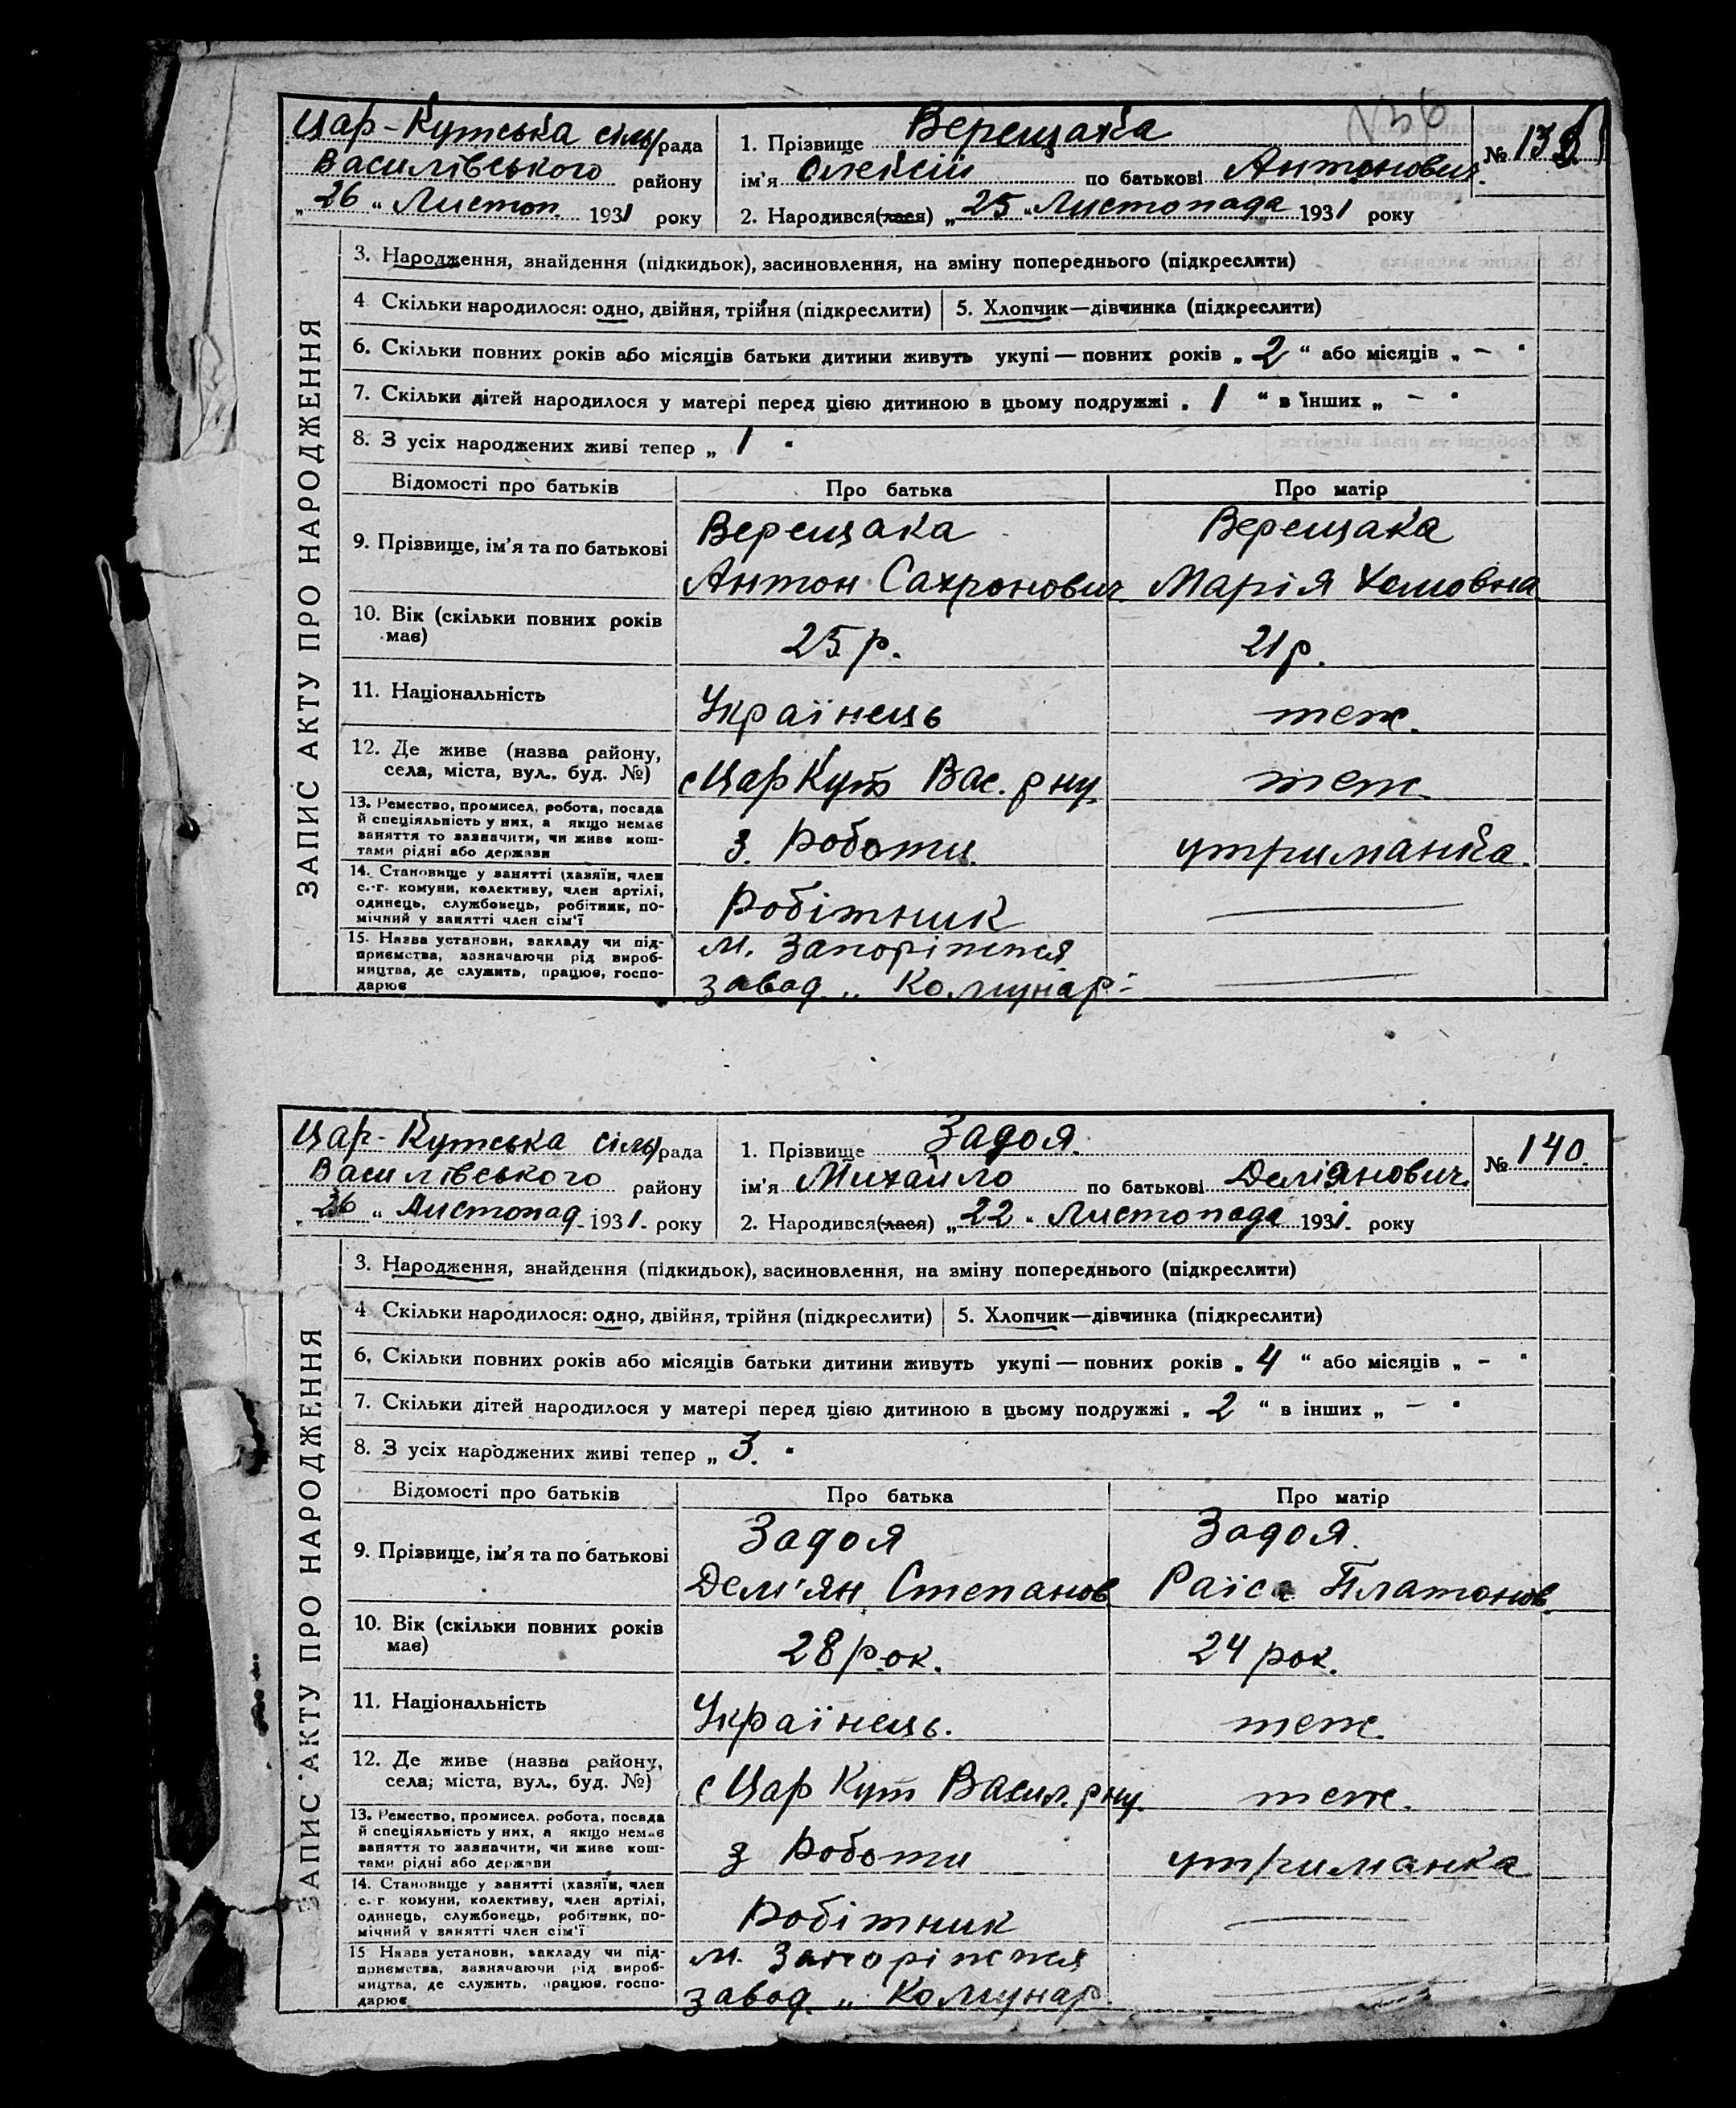 Цар-Кутська сільрада
Василівського району
„26“ Листоп. 1931 року
1. Прізвище Верещака
ім'я Олексій по батькові Антонович
2. Народився(лася) „25“ Листопада 1931 року
№ 13
ЗАПИС АКТУ ПРО НАРОДЖЕННЯ
3. Народження, знайдення (підкидьок), засиновлення, на зміну попереднього (підкреслити)
4 Скільки народилося: одно, двійня, трійня (підкреслити) 5. Хлопчик—дівчинка (підкреслити)
6. Скільки повних років або місяців батьки дитини живуть укупі — повних років „ 2 “ або місяців „ – “
7. Скільки дітей народилося у матері перед цією дитиною в цьому подружжі „ 1 “ в інших „ – “
8. З усіх народжених живі тепер „ 1 “
Відомості про батьків Про батька Про матір
9. Прізвище, ім'я та по батькові
Верещака Верещака
Антон Сахронович Марія Хомовна
10. Вік (скільки повних років має) 25 р. 21 р.
11. Національність Українець теж.
12. Де живе (назва району, села, міста, вул., буд. №) с Цар Кут Вас. р ну. теж.
13. Ремество, промисел, робота, посада
й спеціяльність у них, а якщо немає
заняття то зазначити, чи живе кош-
тами рідні або держави
з. Роботи утриманка.
14. Становище у занятті (хазяїн, член
с.-г. комуни, колективу, член артілі,
одинець, службовець, робітник, по-
мічний у занятті член сім'ї
Робітник —
15. Назва установи, закладу чи під-
приємства, зазначаючи рід вироб-
ництва, де служить, працює, госпо-
дарює
м. Запоріжжя
завод „ Комунар —
Цар-Кутська сільрада
Василівського району
„26“ Листопад 1931. року
1. Прізвище Задоя.
ім'я Михайло по батькові Деміянович.
2. Народився(лася) „22“ Листопада 1931. року
№ 140.
ЗАПИС АКТУ ПРО НАРОДЖЕННЯ
3. Народження, знайдення (підкидьок), засиновлення, на зміну попереднього (підкреслити)
4 Скільки народилося: одно, двійня, трійня (підкреслити) 5. Хлопчик—дівчинка (підкреслити)
6. Скільки повних років або місяців батьки дитини живуть укупі — повних років „ 4 “ або місяців „ – “
7. Скільки дітей народилося у матері перед цією дитиною в цьому подружжі „ 2 “ в інших „ – “
8. З усіх народжених живі тепер „ 3. “
Відомості про батьків Про батька Про матір
9. Прізвище, ім'я та по батькові
Задоя Задоя.
Дем'ян Степанов. Раїса Платонов.
10. Вік (скільки повних років має) 28 рок. 24 рок.
11. Національність Українець. теж.
12. Де живе (назва району, села, міста, вул., буд. №) с Цар Кут Васил. р ну. теж.
13. Ремество, промисел, робота, посада
й спеціяльність у них, а якщо немає
заняття то зазначити, чи живе кош-
тами рідні або держави
з Роботи утриманка
14. Становище у занятті (хазяїн, член
с.-г. комуни, колективу, член артілі,
одинець, службовець, робітник, по-
мічний у занятті член сім'ї
Робітник —
15 Назва установи, закладу чи під-
приємства, зазначаючи рід вироб-
ництва, де служить, працює, госпо-
дарює
м. Запоріжжя
завод „ Комунар. —